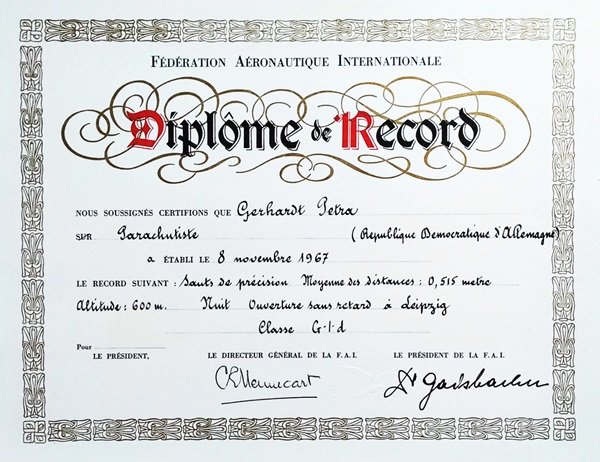 FÉDÉRATION AÉRONAUTIQUE INTERNATIONALE
Diplôme de Record
NOUS SOUSSIGNÉS CERTIFIONS QUE Gerhardt Petra
SUR Parachutiste (Republique Democratique d'Allemagne)
a ÉTABLI LE 8 novembre 1967
LE RECORD SUIVANT : Sauts de précision Moyenne des distances : 0,515 metre
Altitude : 600 m. Nuit Ouverture sans retard à Leipzig
Classe G-1-d
Pour
LE PRÉSIDENT, LE DIRECTEUR GÉNÉRAL DE LA F.A.I. LE PRÉSIDENT DE LA F.A.I.